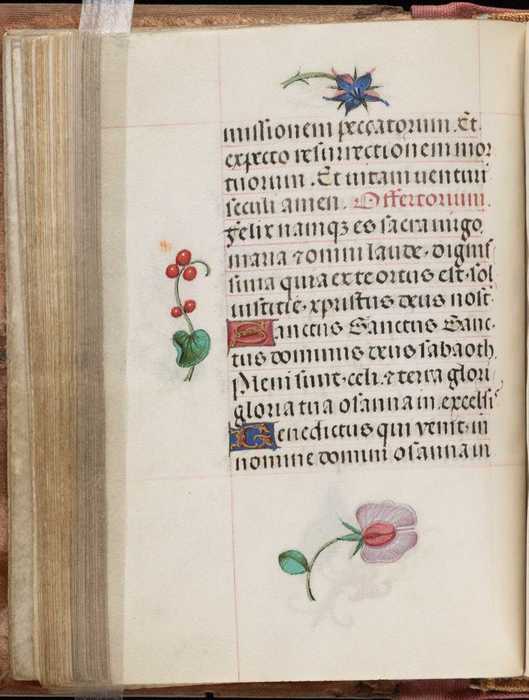 missionem peccatorum. Et
expecto resurrectionem mor
tuorum. Et vitam venturi
seculi amen. Offertorium.
Felix namqz es sacra virgo
maria ⁊ omni laude. dignis
sima quia ex te ortus est. sol
iusticie. xpristus deus nost.
Sanctus Sanctus Sanc-
tus dominus deus sabaoth
Pleni sunt. celi. ⁊ terra glori
gloria tua osanna in. excelsi
Benedictus qui venit. in
nomine domini osanna in